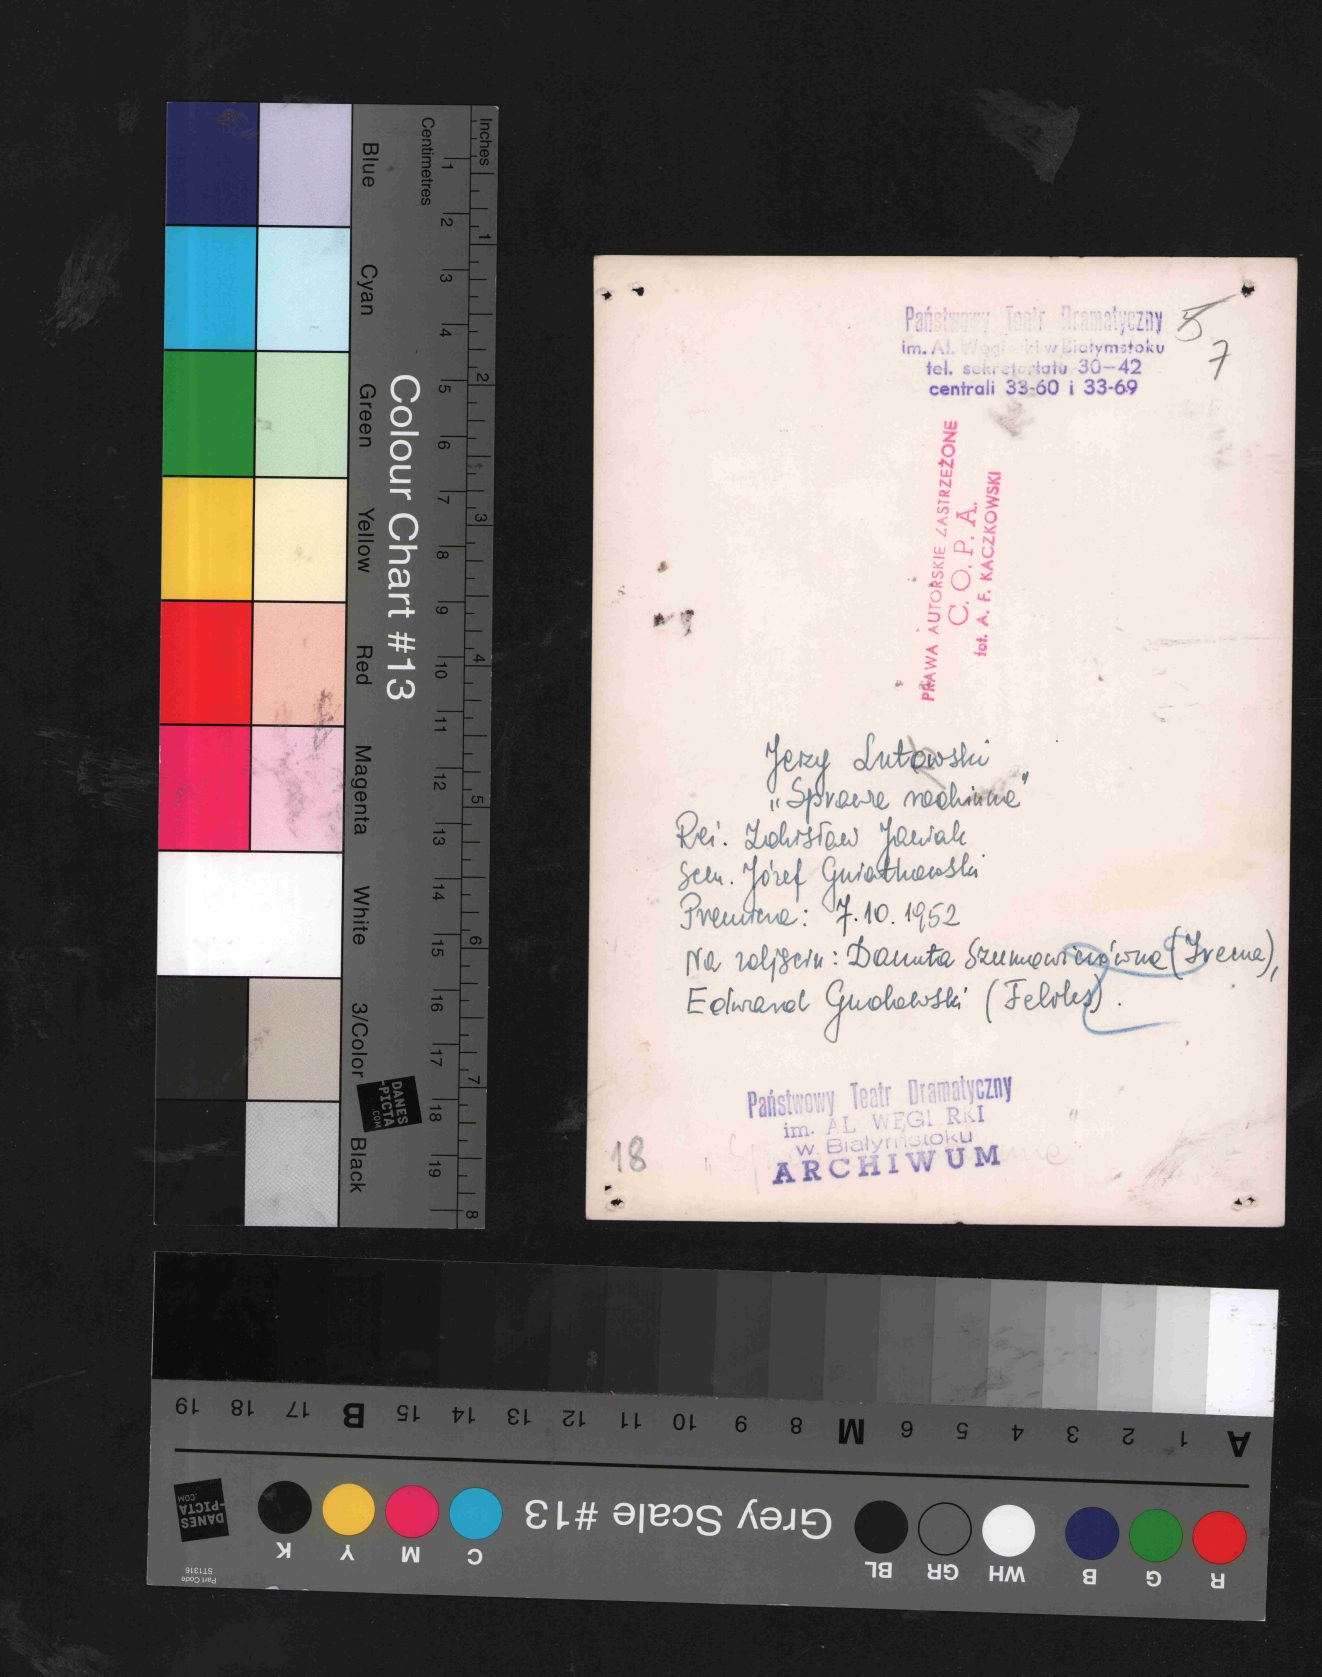 Państwowy Teatr Dramatyczny
im. Al. Węgierki w Białymstoku
tel. sekretariatu 30-42
centrali 33-60 i 33-69
5
7
PRAWA AUTORSKIE ZASTRZEŻONE
C. O. P. A.
fot. A. F. KACZKOWSKI
Jerzy Lutowski
„Sprawa rodzinna"
Reż. Zdzisław Janiak
Scen. Józef Gniatkowski
Premiera: 7.10.1952
Na zdjęciu: Danuta (Irena),
Edward (Feliks).
Państwowy Teatr Dramatyczny
im. AL WĘGI RKI
w Białymstoku
ARCHIWUM
18
Colour Chart #13
Blue
Cyan
Green
Yellow
Red
Magenta
White
3/Color
Black
Centimetres
1 2 3 4 5 6 7 8 9 10 11 12 13 14 15 16 17 18 19
Inches
1 2 3 4 5 6 7 8
DANES
-PICTA
.COM
Grey Scale #13
A 1 2 3 4 5 6 M 8 9 10 11 12 13 14 15 B 17 18 19
R G B WH GR BL
C M Y K
DANES
-PICTA
.COM
Part Code
ST1316